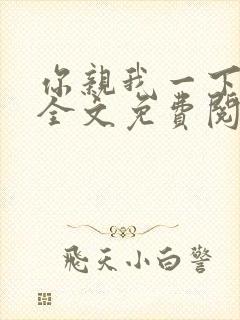 你亲我一下
全文免费阅
飛天小白警